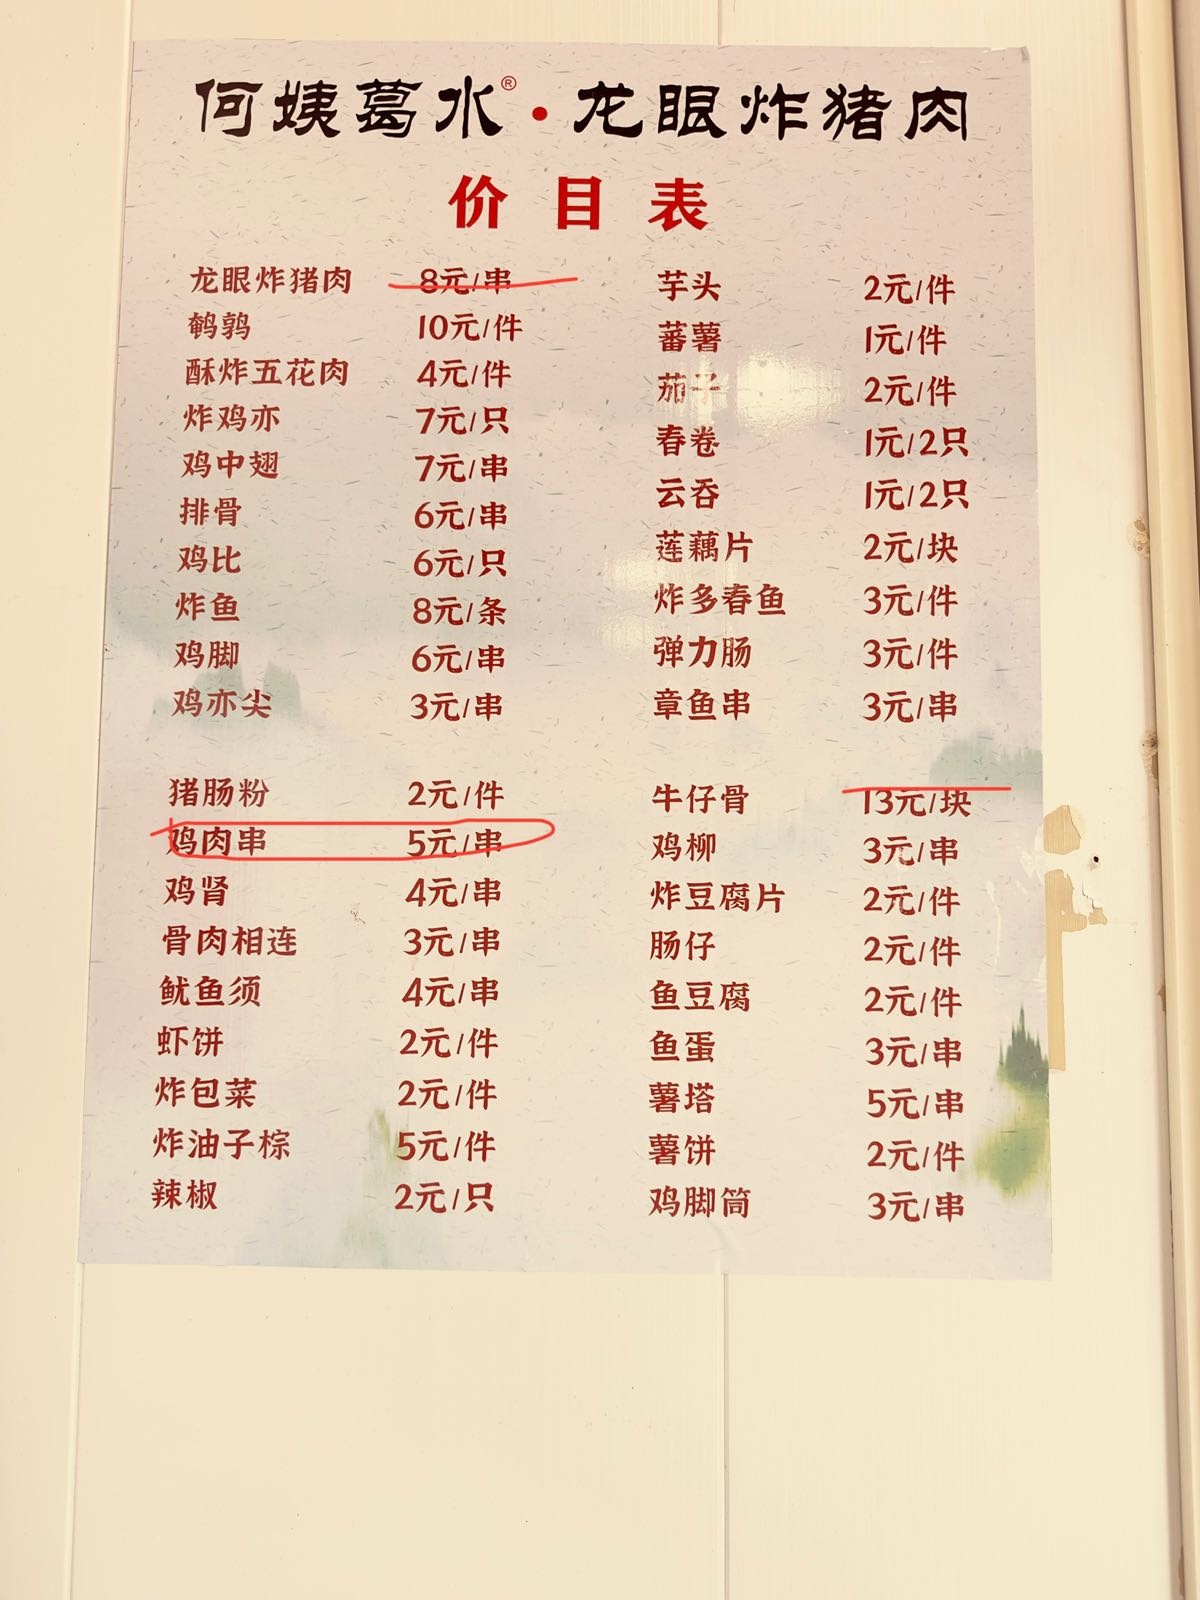 何姨葛水®·龙眼炸猪肉
价目表
龙眼炸猪肉 8元/串
鹌鹑 10元/件
酥炸五花肉 4元/件
炸鸡亦 7元/只
鸡中翅 7元/串
排骨 6元/串
鸡比 6元/只
炸鱼 8元/条
鸡脚 6元/串
鸡亦尖 3元/串
猪肠粉 2元/件
鸡肉串 5元/串
鸡肾 4元/串
骨肉相连 3元/串
鱿鱼须 4元/串
虾饼 2元/件
炸包菜 2元/件
炸油子棕 5元/件
辣椒 2元/只
芋头 2元/件
蕃薯 1元/件
茄子 2元/件
春卷 1元/2只
云吞 1元/2只
莲藕片 2元/块
炸多春鱼 3元/件
弹力肠 3元/件
章鱼串 3元/串
牛仔骨 13元/块
鸡柳 3元/串
炸豆腐片 2元/件
肠仔 2元/件
鱼豆腐 2元/件
鱼蛋 3元/串
薯塔 5元/串
薯饼 2元/件
鸡脚筒 3元/串